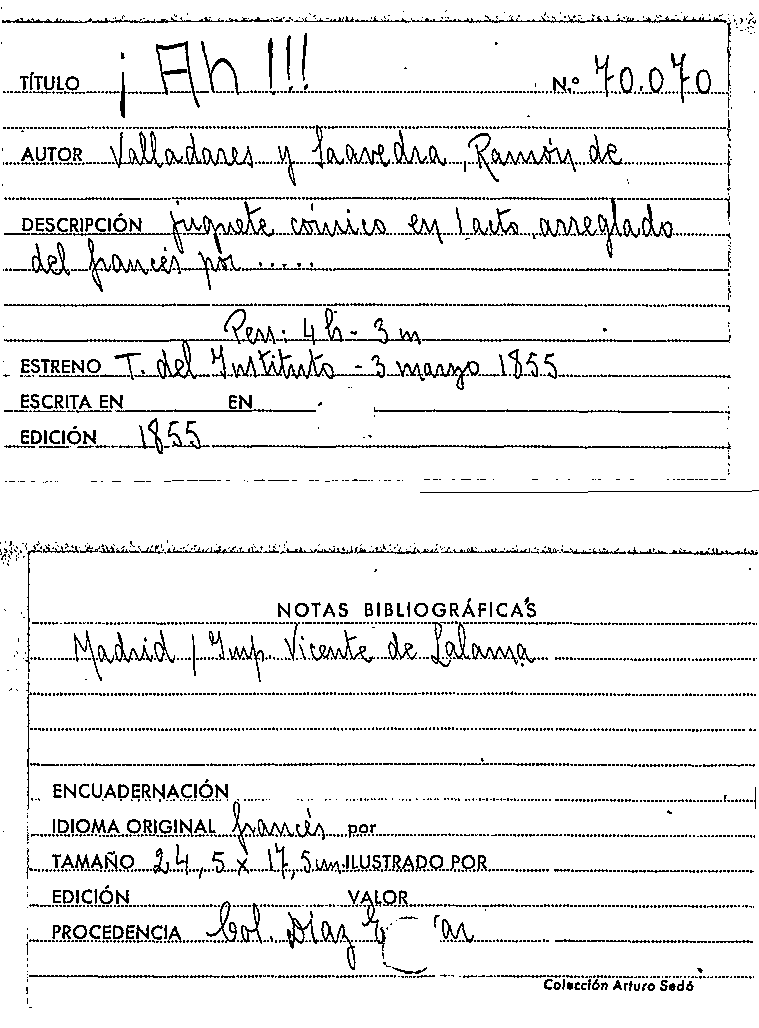 TÍTULO ¡Ah!!! N.º 70.070
AUTOR Valladares y Saavedra, Ramón de
DESCRIPCIÓN juguete cómico en 1 acto, arreglado
del francés por .....
Pers: 4 h - 3 m
ESTRENO T. del Instituto - 3 marzo 1855
ESCRITA EN EN
EDICIÓN 1855
NOTAS BIBLIOGRÁFICAS
Madrid / Imp. Vicente de Lalama
ENCUADERNACIÓN
IDIOMA ORIGINAL francés por
TAMAÑO 24,5 x 17,5 cm ILUSTRADO POR
EDICIÓN VALOR
PROCEDENCIA Col. Díaz
Colección Arturo Sedó